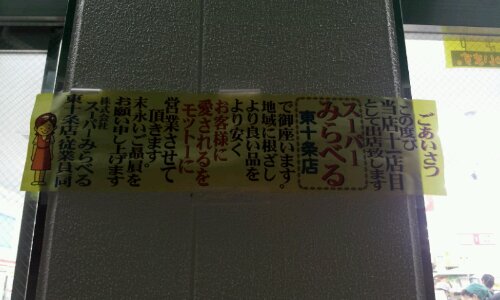 ごあいさつ
この度び
当店十一店目
として出店致します
スーパー
みらべる
東十条店
で御座います。
地域に根ざし
より良い品を
より安く
お客様に
愛されるを
モットーに
営業させて
頂きます。
末永いご品屓を
お願い申し上げます
株式会社
スーパーみらべる
東十条店従業員一同